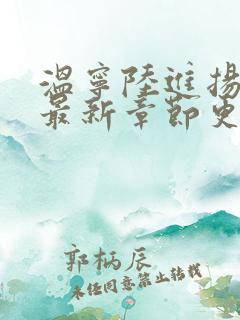 温寧陸進揚
最新章節史
郭柄辰
未任同意禁止转載